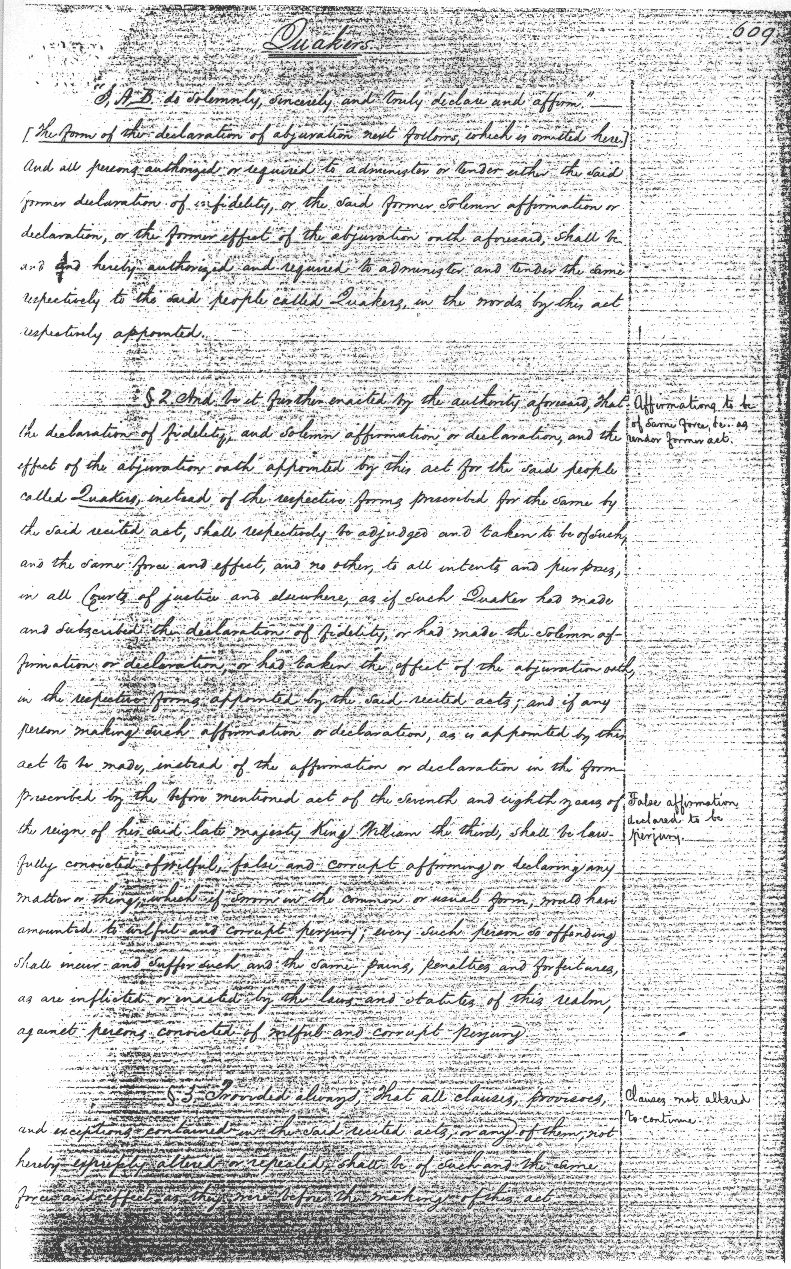 Quakers
609
"I, A. B. do solemnly, sincerely and truly declare and affirm."
[The form of the declaration of abjuration next follows, which is omitted here.]
And all persons authorized or required to administer or tender either the said
former declaration of infidelity, or the said former solemn affirmation or
declaration, or the former effect of the abjuration oath aforesaid, shall be
and and hereby authorized and required to administer and tender the same
respectively to the said people called Quakers, in the words by this act
respectively appointed.
§ 2. And be it further enacted by the authority aforesaid, that
the declaration of fidelity, and solemn affirmation or declaration, and the
effect of the abjuration oath appointed by this act for the said people
called Quakers, instead of the respective forms prescribed for the same by
the said recited act, shall respectively be adjudged and taken to be of such,
and the same force and effect, and no other, to all intents and purposes,
in all Courts of justice and elsewhere, as if such Quaker had made
and subscribed the declaration of fidelity, or had made the solemn af-
firmation or declaration, or had taken the effect of the abjuration oath,
in the respective forms appointed by the said recited acts; and if any
person making such affirmation or declaration, as is appointed by this
act to be made, instead of the affirmation or declaration in the form
prescribed by the before mentioned act of the seventh and eighth years of
the reign of his said late majesty King William the third, shall be law-
fully convicted of wilful, false and corrupt affirming or declaring any
matter or thing, which if sworn in the common or usual form, would have
amounted to wilful and corrupt perjury; every such person so offending
shall incur and suffer such and the same pains, penalties and forfeitures,
as are inflicted or enacted by the laws and statutes of this realm,
against persons convicted of wilful and corrupt perjury
§ 3. Provided always, that all clauses, provisoes,
and exceptions contained in the said recited acts, or any of them, not
hereby expressly altered or repealed, shall be of such and the same
force and effect as they were before the making of this act
Affirmations to be
of same force, &c. as
under former act.
False affirmation
declared to be
perjury.
Clauses not altered
to continue